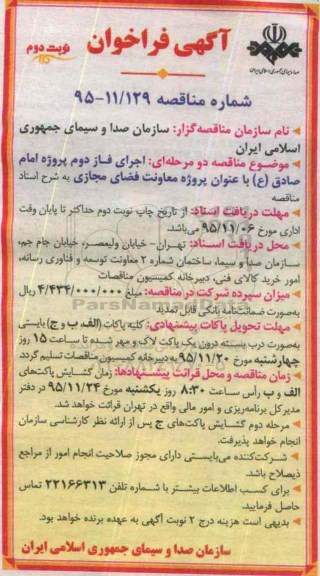 آگهی فراخوان
نوبت دوم
صدا و سیمای جمهوری اسلامی ایران
شماره مناقصه ۹۵-۱۱/۱۲۹
نام سازمان مناقصه‌گزار: سازمان صدا و سیمای جمهوری
اسلامی ایران
موضوع مناقصه دو مرحله‌ای: اجرای فاز دوم پروژه امام
صادق (ع) با عنوان پروژه معاونت فضای مجازی به شرح اسناد
مناقصه
مهلت دریافت اسناد: از تاریخ چاپ نوبت دوم حداکثر تا پایان وقت
اداری مورخ ۹۵/۱۱/۰۶ می‌باشد.
محل دریافت اسناد: تهران- خیابان ولیعصر، خیابان جام جم،
سازمان صدا و سیما، ساختمان شماره ۲ معاونت توسعه و فناوری رسانه،
امور خرید کالای فنی، دبیرخانه کمیسیون مناقصات
میزان سپرده شرکت در مناقصه: مبلغ ۴/۴۳۴/۰۰۰/۰۰۰ ریال
به‌صورت ضمانتنامه بانکی قابل تمدید
مهلت تحویل پاکات پیشنهادی: کلیه پاکات (الف، ب و ج) بایستی
به‌صورت درب بسته درون یک پاکت لاک و مهر شده تا ساعت ۱۵ روز
چهارشنبه مورخ ۹۵/۱۱/۲۰ به دبیرخانه کمیسیون مناقصات تسلیم گردد.
زمان مناقصه و محل قرائت پیشنهادها: زمان گشایش پاکت‌های
الف و ب رأس ساعت ۸:۳۰ روز یکشنبه مورخ ۹۵/۱۱/۲۴ در دفتر
مدیر کل برنامه‌ریزی و امور مالی واقع در تهران قرائت خواهد شد.
مرحله دوم گشایش پاکت‌های ج پس از ارائه نظر کارشناسی سازمان
انجام خواهد پذیرفت.
شرکت‌کننده می‌بایستی دارای مجوز صلاحیت انجام امور از مراجع
ذیصلاح باشد.
برای کسب اطلاعات بیشتر با شماره تلفن ۲۲۱۶۶۳۱۳ تماس
حاصل فرمایید.
بدیهی است هزینه درج ۲ نوبت آگهی به عهده برنده خواهد بود.
سازمان صدا و سیمای جمهوری اسلامی ایران